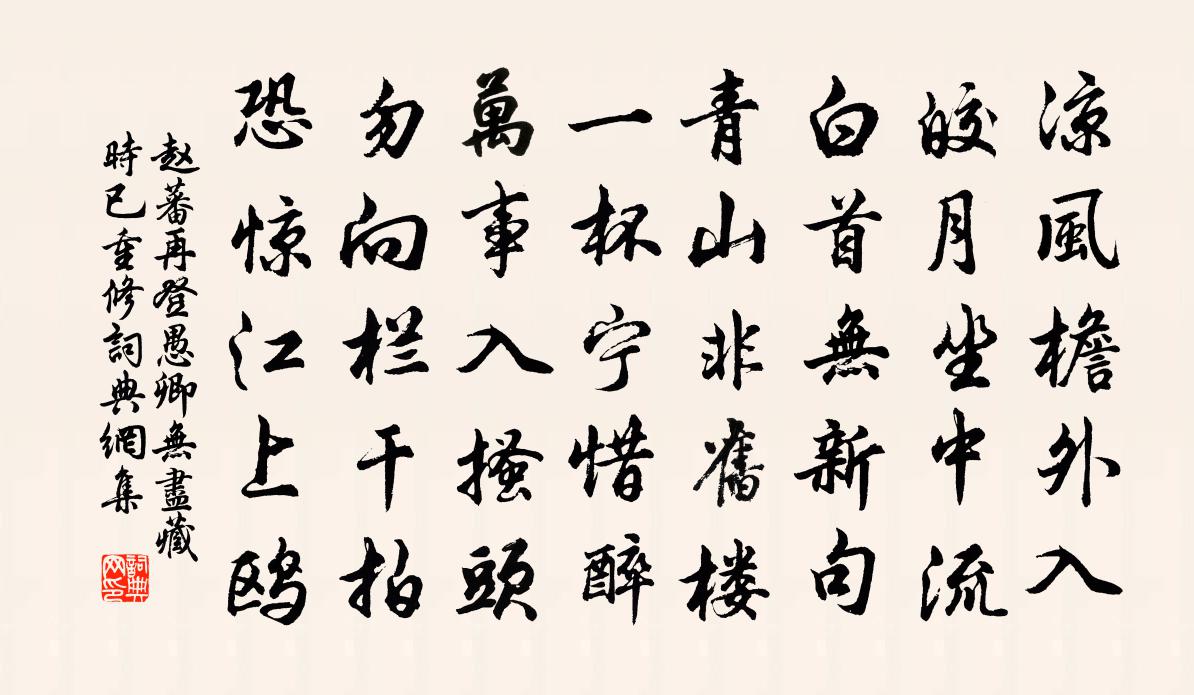 凉風檐外入
皎月坐中流
白首無新句
青山非舊楼
一杯宁惜醉
萬事入搔頭
勿向栏干拍
恐惊江上鸥
赵蕃再登愚卿無盡藏
時已重修詞典網集
詞典网印